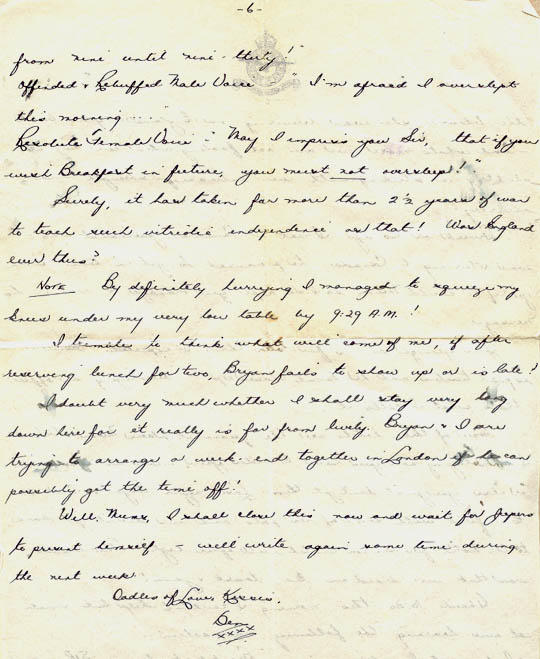 -6-
from nine until nine-thirty!"
Offended & Rebuffed Male Voice - "I'm afraid I overslept
this morning...."
Resolute Female Voice - "May I impress you Sir, that if you
wish Breakfast in future, you must not oversleep!"
Surely, it has taken far more than 2½ years of war
to teach such vitriolic independence as that! Was England
ever thus?
Note By definitely hurrying I managed to squeeze my
knees under my very low table by 9:29 A.M.!
I trembles to think what will come of me, if after
reserving lunch for two, Bryan fails to show up or is late!
I doubt very much whether I shall stay very long
down here for it really is far from lively. Bryan & I are
trying to arrange a week-end together in London if he can
possibly get the time off!
Well, Mums, I shall close this now and wait for
to present himself - will write again some time during
the next week.
Oodles of Love, Kisses.
xxxx